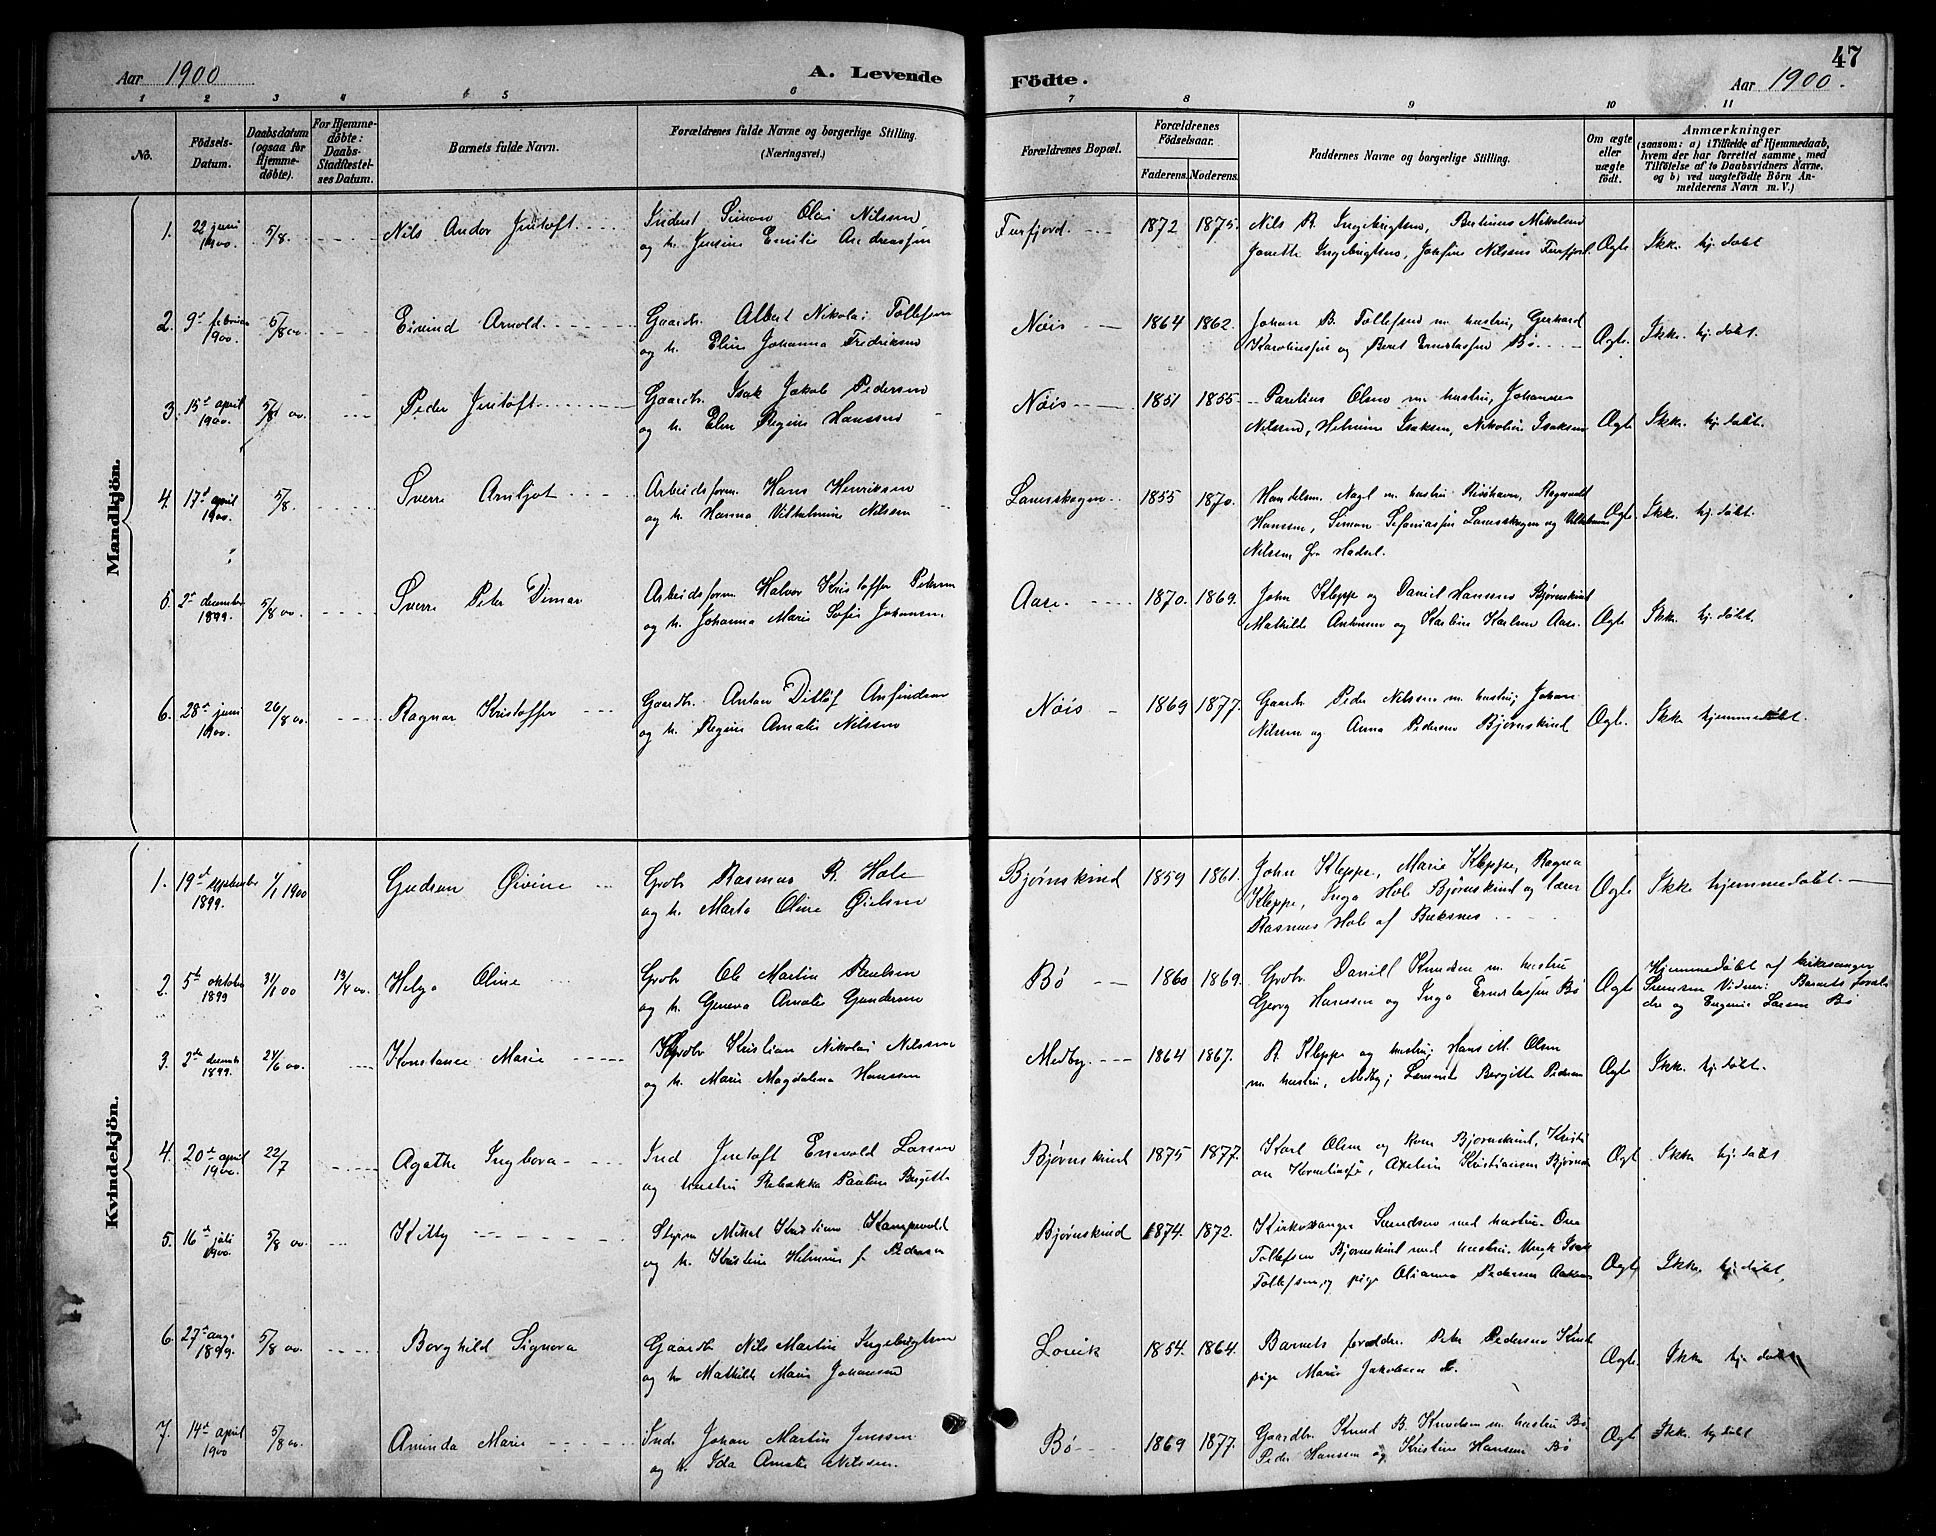 47
Aar 1900
A. Levende
Födte.
Aar 1900.
1 2 3 4 5 6 7 8 9 10 11
No.
Födsels-
Datum.
Daabsdatum
(ogsaa for
Hjemme-
döbte).
For Hjemme-
döbte:
Daabs-
Stadfæstel-
ses Datum.
Barnets fulde Navn.
Forældrenes fulde Navne og borgerlige Stilling.
(Næringsvei.)
Forældrenes Bopæl.
Forældrenes
Födselsaar.
Faderens. Moderens.
Faddernes Navne og borgerlige Stilling.
Om ægte
eller
uægte
födt.
Anmærkninger
(saasom: a) i Tilfælde af Hjemmedaab,
hvem der har forrettet samme, med
Tilföielse af to Daabsvidners Navne,
og b) ved uægtefödte Börn An-
melderens Navn m. V.)
Mandkjön.
1. 22 juni 1900. 5/8. Nils Andor Jentoft
Inderst Simon Olai Nilssen
og h. Jensine Emilie Andreassen
Furfjord. 1872 1875.
Nils R. Ingebrigtsen, Bertinus Mikalsen
Janette Ingebrigtsen, Josefine Nilsens Furfjord.
Ægte Ikke hj. døbt
2. 9d februar 1900. 5/8 00. Eivind Arnold
Gaardbr. Albert Nikolai Tollefsen
og h. Eline Johanna Fredriksen
Nöis 1864 1862.
Johan B. Tollefsen m. hustru, Gerhard
Karoliussen og Beret Ernstassen Bø
Ægte. Ikke. hj. døbt.
3. 15d april 1900. 5/8 00. Peder Jentoft
Gaardb. Isak Jakob Pedersen
og h. Elen Regine Hanssen
Nöis 1851 1855.
Parelius Olsen m. hustru, Johannes
Nilssen, Helmine Isaksen, Nikoline Isaksen
Ægte Ikke. hj. døbt.
4. 17d april 1900. 5/8. Sverre Arnljot
Arbeidsform. Hans Henriksen
og h. Hanna Vilhelmine Nilsen
Lanesskogen 1855 1870.
Handelsm. Nagl m. hustru Risøhavn, Ragnvald
Hanssen, Simon Sefaniassen Lanesskogen og Vilhelmine
Nilssen fra Hadsel.
Ægte Ikke hj. døbt.
5. 2d december 1899. 5/8 00. Sverre Peter Dimar
Arbeidsform. Halvor Kristoffer Petersen
og h. Johanna Marie Sofie Johansen.
Aase. 1870. 1869.
John Kleppe og Daniel Hanssen Bjørnskind
Mathilde Antonsen og Karline Karlsen Aase.
Ægte Ikke hj. døbt.
6. 28d juni 1900. 26/8 00. Ragnar Kristoffer
Gaardb. Anton Ditlöf Anfindsen
og h. Regine Amalie Nilssen
Nöis 1869 1877.
Gaardb Peder Nilssen m. hustru; Johan
Nilssen og Anna Pedersen Bjørnskind
Ægte. Ikke hjemmedøbt.
Kvindekjön.
1. 19d september 1899. 1/1 1900 Gudrun Øivine
Grdbr Rasmus R. Hole
og h. Marta Oline Øielsen
Bjørnskind 1859 1861.
John Kleppe, Marie Kleppe, Ragna
Kleppe, Inga Hole Bjørnskind og lærer
Rasmus Hole af Buksnes
Ægte Ikke hjemmedøbt
2. 5te oktober 1899 31/1 00 13/4 00. Helga Oline
Grdbr Ole Martin Paulsen
og h. Geneva Amalie Gundersen
Bø 1860 1869.
Grdbr Daniel Knudsen m. hustru
Georg Hanssen og Inga Ernstassen Bø
Ægte Hjemmedøbt af kirkesanger
Svensen Vidner: Barnets foræl-
dre og Eugenie Larsen Bø
3. 2den decemb. 1899. 24/6 00. Konstance Marie
Grdbr Kristian Nikolai Nilssen
og h. Marie Magdalena Hanssen
Medby. 1864 1867.
R. Kleppe og hustru; Hans M. Olsen
m. hustru, Medby; Laurentse Bergitte Pedersen
Ægte Ikke. hj. døbt.
4. 20de april 1900. 22/7 Agathe Ingbora
Ind Jentoft Enevold Larsen
og hustru Rebakka Pauline Bergitte
Bjørnskind 1875 1877.
Karl Olsen og kone Bjørnskind, Kristi-
an Korneliussen, Axeline Kristiansen Bjørnsk
Ægt Ikke hj. døbt
5. 16d juli 1900. 5/8 00. Kitty
Mikal Kristian Kampevold
og h. Kristine Helmine f. Pedersen
Bjørnskind 1874. 1872.
Kirkesanger Svendsen med hustru. Ove
Tollefsen Bjørnskind med hustru. Ungk Isak
Tollefsen og pige Olianna Pedersen
Ægt Ikke hj. døbt,
6. 27d aug. 1899. 5/8 00. Borghild Signora
Gaardb Nils Martin Ingebrigtsen
og h. Mathilde Marie Johansen
Lovik 1854. 1864.
Barnets forældre. Peter Pedersen
pige Marie Jakobsen
Ægte. Ikke hj. døbt
7. 14d april 1900 5/8 00. Aminda Marie
Ind. Johan Martin Jenssen
og h. Ida Amalie Nilssen.
Bø 1869 1877.
Gaardbr. Knud B. Knudsen m. hustru Bø
Peder Hanssen og Kristine Hansen Bø
Ægt Ikke. hj døbt